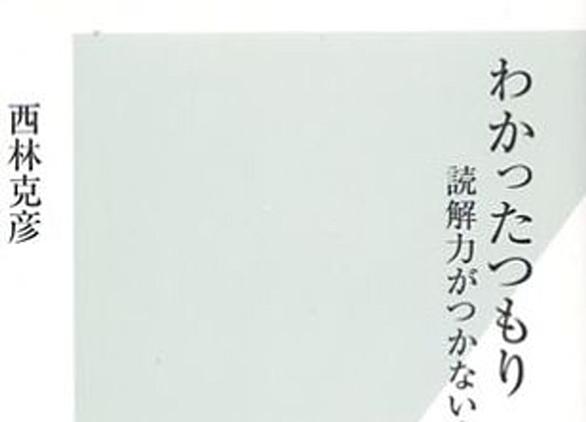 わかったつもり
読解力がつかない
西林克彦